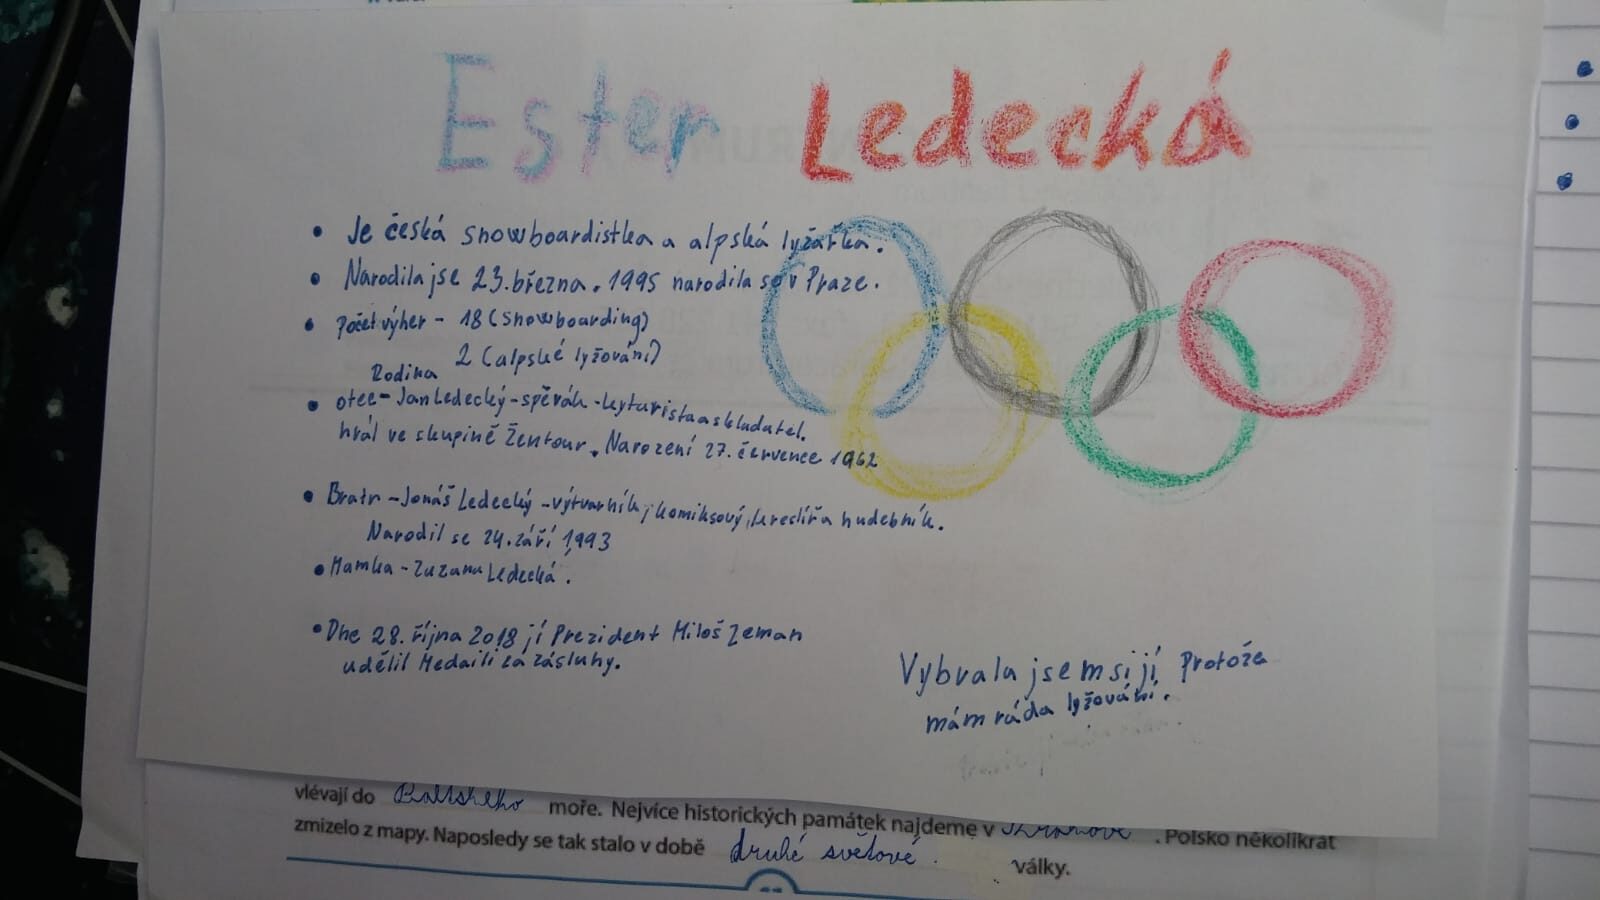 Ester Ledecká
• Je česká snowboardistka a alpská lyžařka.
• Narodila jse 23. března. 1995 narodila se v Praze.
• Počet výher - 18 (snowboarding)
2 (alpské lyžování)
Rodina
• otec - Jan Ledecký - spěvák - kytarista a skladatel.
hrál ve skupině Žentour. Narození 27. července 1962
• Bratr - Jonáš Ledecký - výtvarník, komiksový, kreslíř a hudebník.
Narodil se 24. září 1993
• Mamka - Zuzana Ledecká.
• Dne 28. října 2018 jí Prezident Miloš Zeman
udělil Medaili za zásluhy.
Vybrala jsem si jí Protože
mám ráda lyžování.
vlévají do Baltského moře. Nejvíce historických památek najdeme v Krakově . Polsko několikrát
zmizelo z mapy. Naposledy se tak stalo v době druhé světové. války.